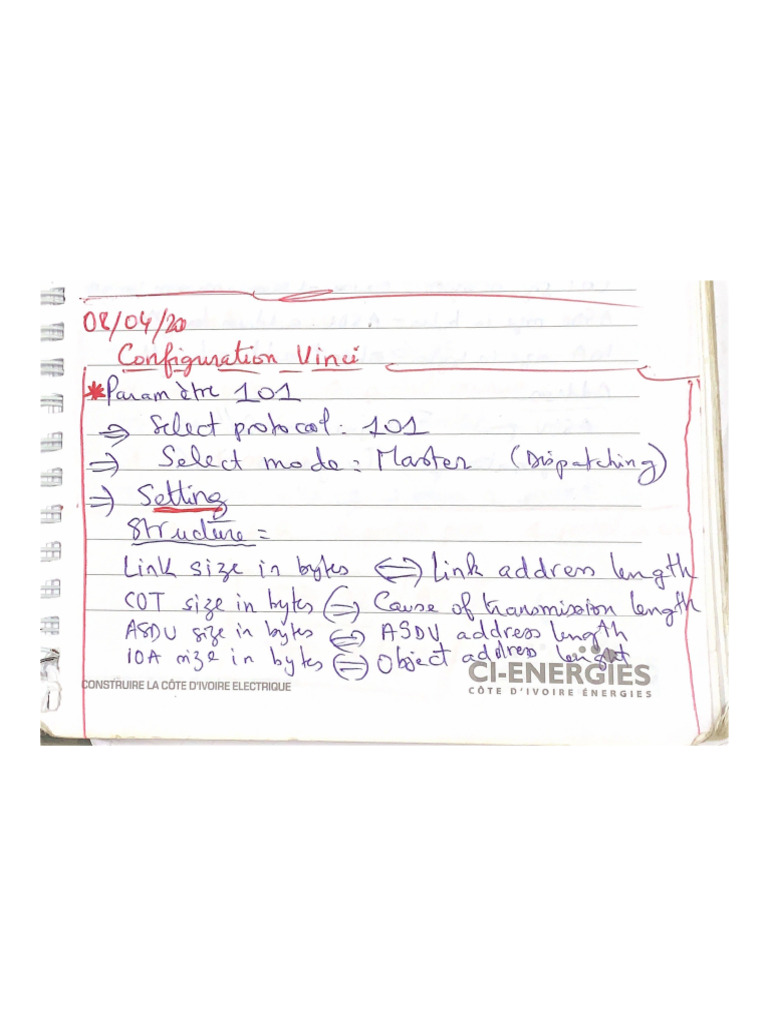 08/04/20
Configuration Vinci
*Paramètre 101
⇒ Select protocol : 101
⇒ Select mode : Master (Dispatching)
⇒ Setting
Structure :
Link size in bytes ⇔ Link address length
COT size in bytes ⇔ Cause of transmission length
ASDU size in bytes ⇔ ASDU address length
IOA size in bytes ⇔ Object address lenght
CONSTRUIRE LA CÔTE D'IVOIRE ELECTRIQUE
CI-ENERGIES
CÔTE D'IVOIRE ÉNERGIES